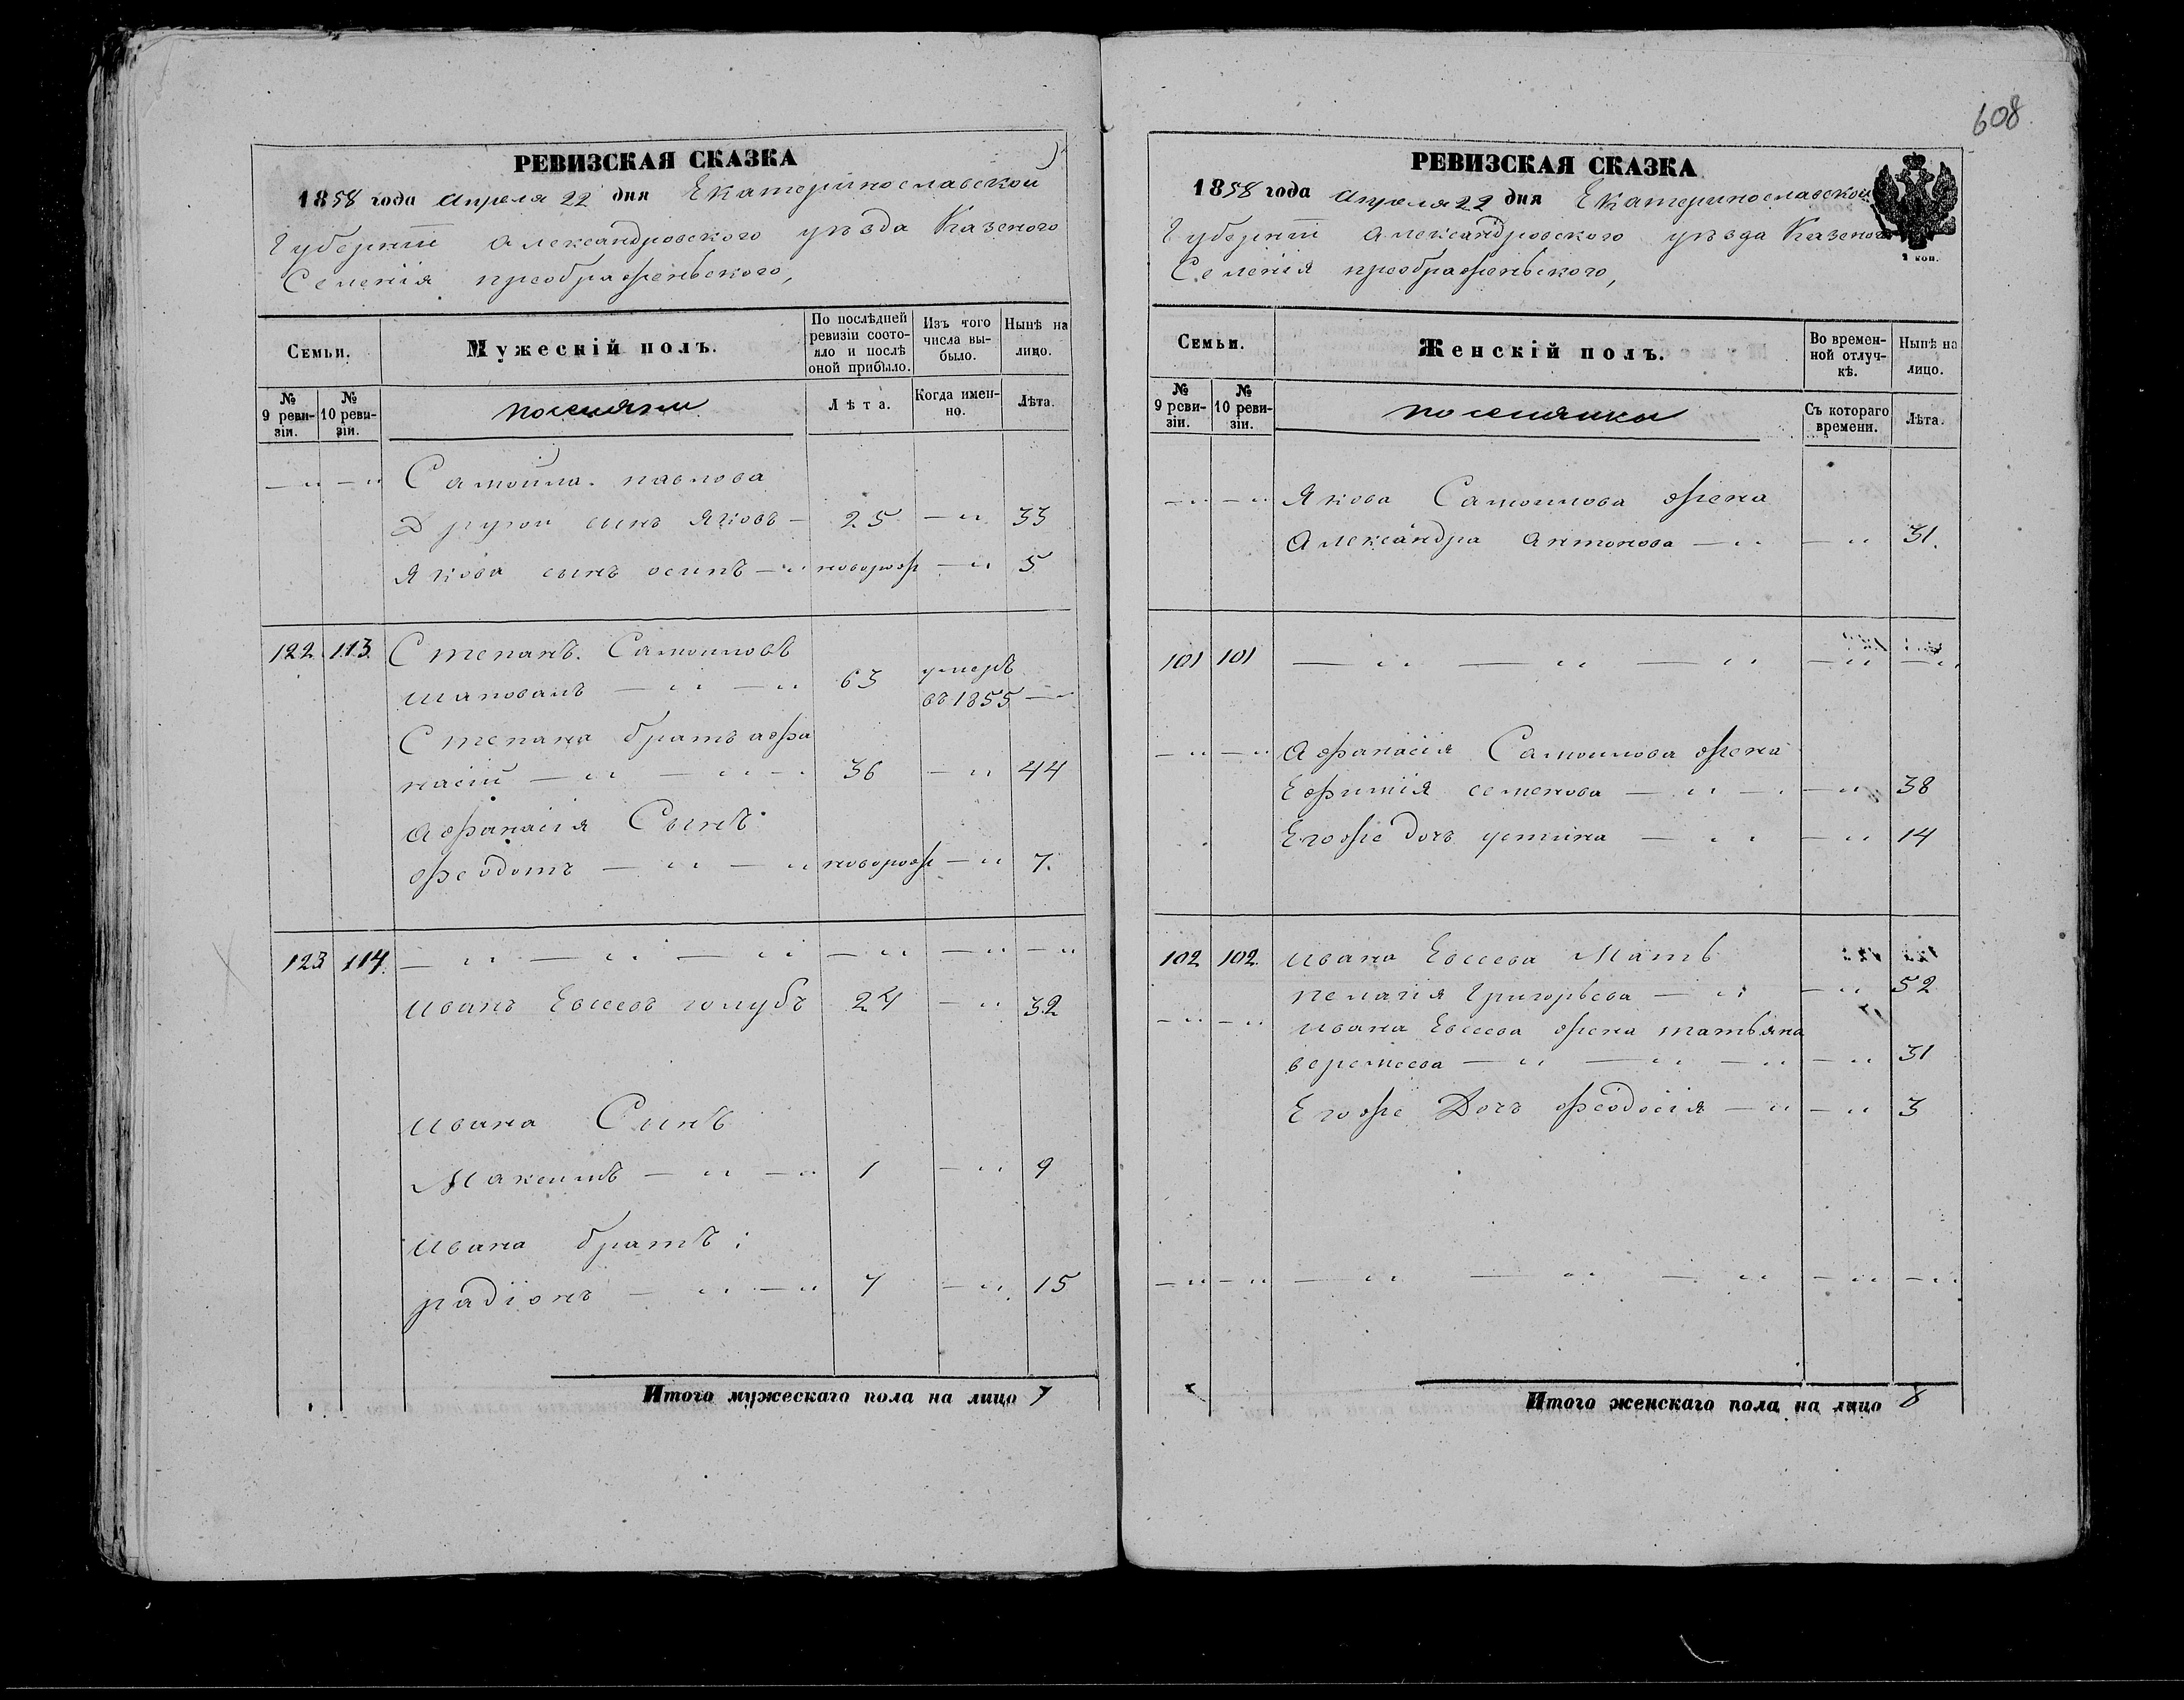 608.
РЕВИЗСКАЯ СКАЗКА
1858 года апреля 22 дня Екатеринославской
Губернiи александровского уѣзда Казеного
Селенiя преображеньского,
Семьи.
Мужескiй полъ.
По послѣдней ревизiи состояло и послѣ оной прибыло.
Изъ того числа выбыло.
Нынѣ на лицо.
№ 9 ревизiи.
№ 10 ревизiи.
поселяни
Лѣта.
Когда именно.
Лѣта.
— " — " Самоила павлова
Другои синъ Яковъ — 25 — " 33
Якова сынъ осипъ — " новорож — " 5
122 113 Степанъ Самоиловъ
шаповалъ — " — " 63 умеръ въ 1855 —
Степана братъ афа
насiй — " — " — 36 — " 44
афанасiя Сынъ
феодотъ — " — " новорож — " 7.
123 114. — " — " — " — " — " — "
иванъ Евсеевъ голубъ 24 — " 32
ивана Синъ
Максимъ — " — " 1 — " 9
ивана братъ:
радiонъ — " — " 7 — " 15
Итого мужескаго пола на лицо 7
РЕВИЗСКАЯ СКАЗКА
1858 года апреля 22 дня Екатеринославской
Губернiи александровского уѣзда Казеного
Селенiя преображеньского,
2 коп.
Семьи.
Женскiй полъ.
Во временной отлучкѣ.
Нынѣ на лицо.
№ 9 ревизiи.
№ 10 ревизiи.
поселянки
Съ котораго времени.
Лѣта.
— " — " Якова Самоилова жена
Александра антонова — " — " 31.
101 101 — " — " — " — " — "
— " — " афанасiя Самоилова жена
Ефимiя семенова — " — " — " 38
Егоже дочъ устина — " — " 14
102 102. ивана Евсеева Мать
пелагия Григорьева — " — " 52
— " — " ивана Евсеева жена татьяна
веремеева — " — " — " — " 31
Егоже Дочъ феодосiя — " — " 3
— " — " — " — " — " — " — "
Итого женскаго пола на лицо 8